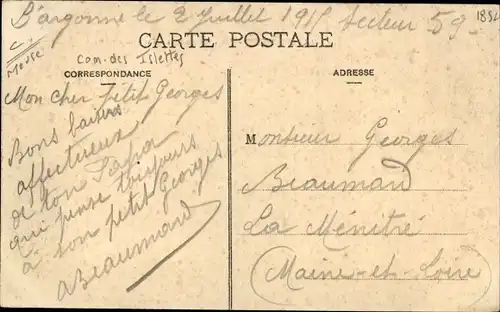 L'argonne le 2 Juillet 1915 secteur 59
CARTE POSTALE
Meuse
Com. des Islettes
CORRESPONDANCE
ADRESSE
Mon cher petit Georges
Bons baisers
affectueux
de ton Papa
qui pense toujours
à son petit Georges
ABeaumard
Monsieur Georges
Beaumard
La Ménitré
Maine-et-Loire